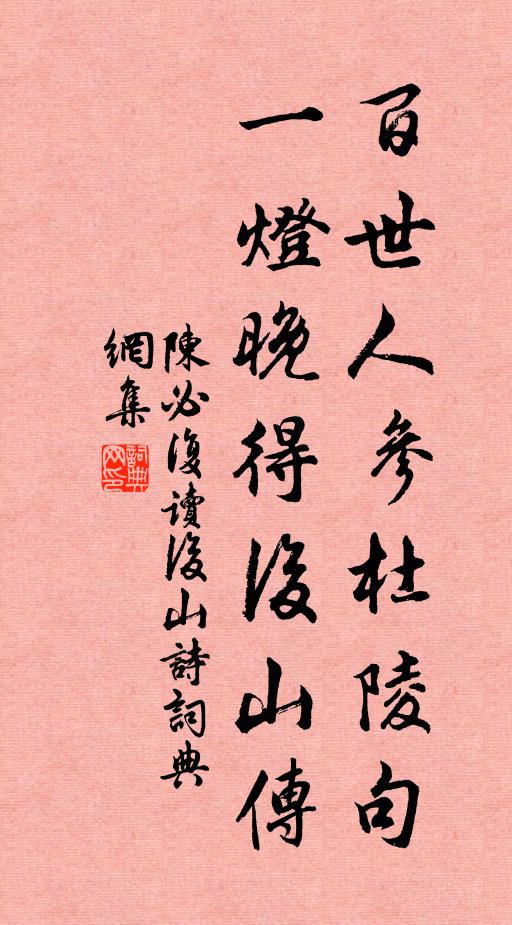 百世人參杜陵句
一燈晚得後山傳
陳必復讀後山詩詞典
網集
詞典網印